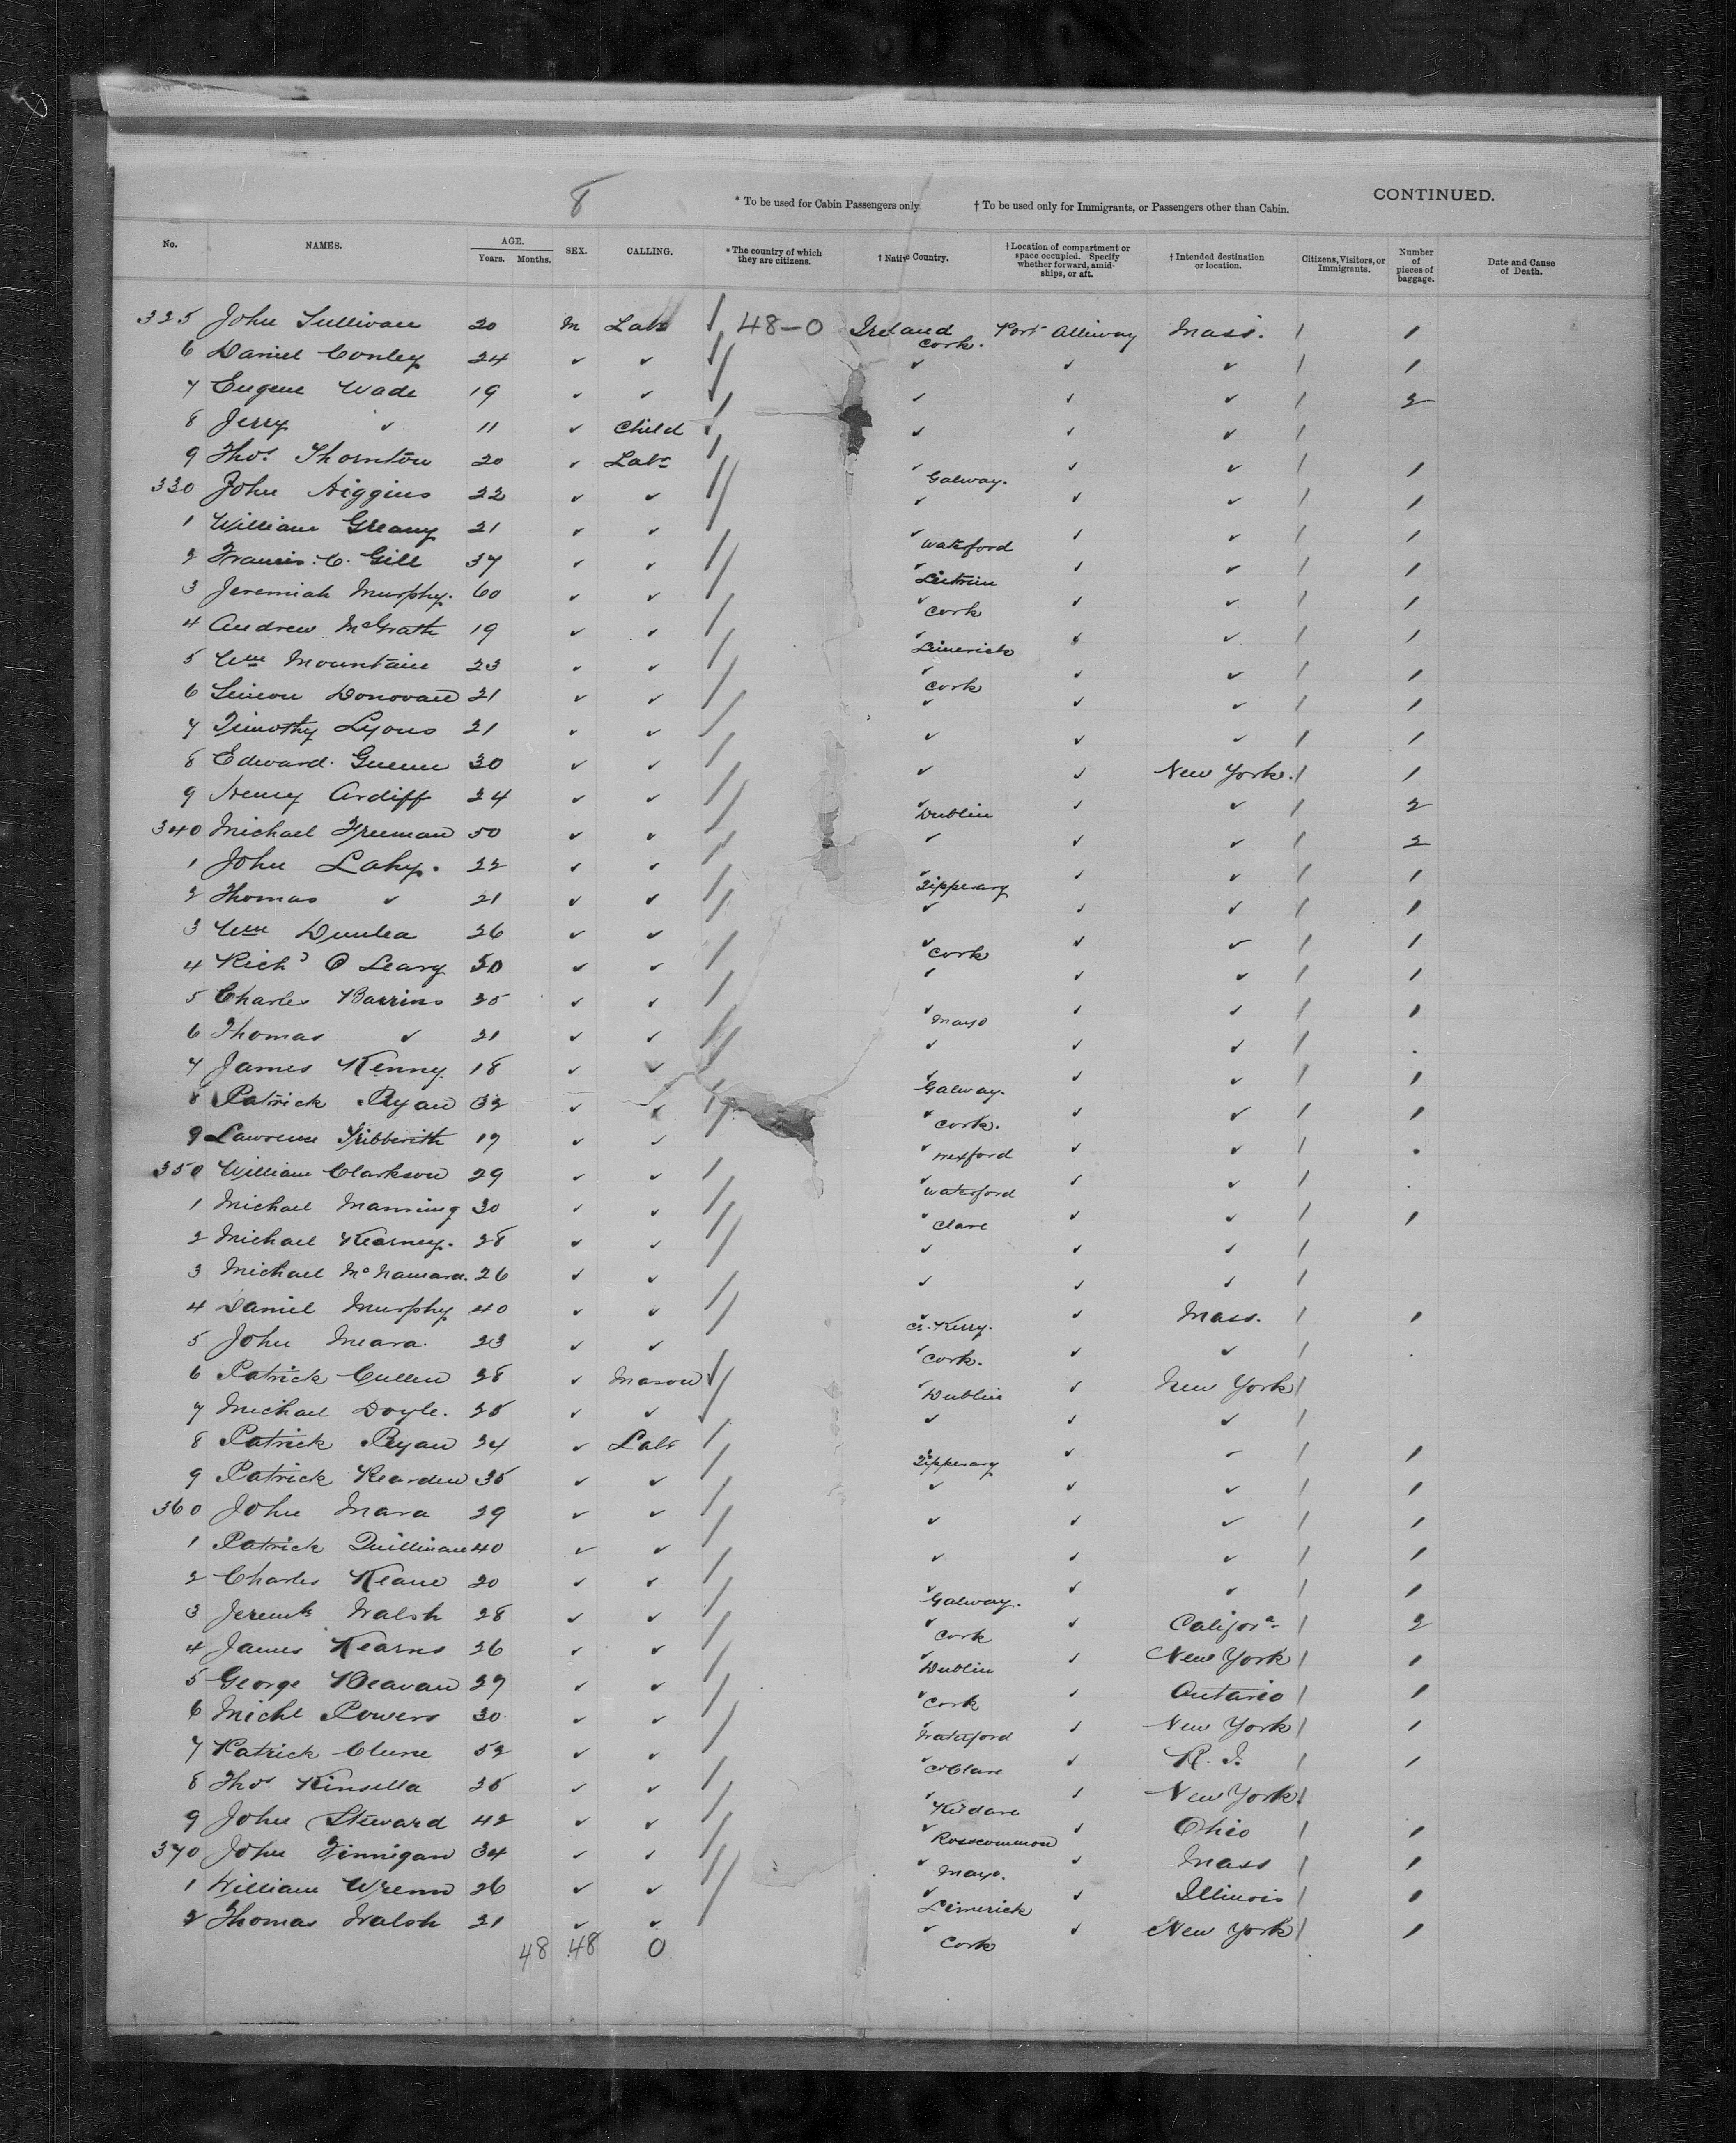 8
* To be used for Cabin Passengers only. † To be used only for Immigrants, or Passengers other than Cabin. CONTINUED.
No. NAMES. AGE. Years. Months. SEX. CALLING. * The country of which they are citizens. † Native Country. † Location of compartment or space occupied. Specify whether forward, amidships, or aft. † Intended destination or location. Citizens, Visitors, or Immigrants. Number of pieces of baggage. Date and Cause of Death.
325 John Sullivan 20 M Labr 48-0 Ireland Cork. Port Alliway Mass. / 1
6 Daniel Conley 24 ✓ ✓ ✓ ✓ ✓ / 1
7 Eugene Wade 19 ✓ ✓ ✓ ✓ ✓ / 2
8 Jerry ✓ 11 ✓ Child ✓ ✓ ✓ /
9 Thos. Thornton 20 ✓ Labr ✓ Galway. ✓ ✓ / 1
330 John Higgins 22 ✓ ✓ ✓ ✓ ✓ / 1
1 William Greany 21 ✓ ✓ ✓ Waterford ✓ ✓ / 1
2 Francis. C. Gill 37 ✓ ✓ ✓ Leitrim ✓ ✓ / 1
3 Jeremiah Murphy. 60 ✓ ✓ ✓ Cork ✓ ✓ / 1
4 Andrew McGrath 19 ✓ ✓ ✓ Limerick ✓ ✓ / 1
5 Wm Mountain 23 ✓ ✓ ✓ Cork ✓ ✓ / 1
6 Simon Donovan 21 ✓ ✓ ✓ ✓ ✓ / 1
7 Timothy Lyons 21 ✓ ✓ ✓ ✓ ✓ / 1
8 Edward. 30 ✓ ✓ ✓ ✓ New York. / 1
9 Henry Ardiff 24 ✓ ✓ ✓ Dublin ✓ ✓ / 2
340 Michael Freeman 50 ✓ ✓ ✓ ✓ ✓ / 2
1 John Lahy. 22 ✓ ✓ ✓ Tipperary ✓ ✓ / 1
2 Thomas ✓ 21 ✓ ✓ ✓ ✓ ✓ / 1
3 Wm Dunlea 26 ✓ ✓ ✓ Cork ✓ ✓ / 1
4 Richd O Leary 50 ✓ ✓ ✓ ✓ ✓ / 1
5 Charles Barrins 25 ✓ ✓ ✓ Mayo ✓ ✓ / 1
6 Thomas ✓ 21 ✓ ✓ ✓ ✓ ✓ / .
7 James Kenny. 18 ✓ ✓ ✓ Galway. ✓ ✓ / 1
8 Patrick Ryan 32 ✓ ✓ ✓ Cork. ✓ ✓ / 1
9 Lawrence 19 ✓ ✓ ✓ Wexford ✓ ✓ / .
350 William Clarkson 29 ✓ ✓ ✓ Waterford ✓ ✓ / .
1 Michael Manning 30 ✓ ✓ ✓ Clare ✓ ✓ / 1
2 Michael Kearney. 28 ✓ ✓ ✓ ✓ ✓ /
3 Michael McNamara. 26 ✓ ✓ ✓ ✓ ✓ /
4 Daniel Murphy 40 ✓ ✓ Co. Kerry. ✓ Mass. / 1
5 John Meara. 23 ✓ ✓ ✓ Cork. ✓ ✓ / .
6 Patrick Cullen 28 ✓ Mason ✓ Dublin ✓ New York /
7 Michael Doyle. 25 ✓ ✓ ✓ ✓ ✓ /
8 Patrick Ryan 24 ✓ Labr ✓ Tipperary ✓ ✓ / 1
9 Patrick Rearden 35 ✓ ✓ ✓ ✓ ✓ / 1
360 John Mara 29 ✓ ✓ ✓ ✓ ✓ / 1
1 Patrick Quillinan 40 ✓ ✓ ✓ ✓ ✓ / 1
2 Charles Keane 20 ✓ ✓ ✓ Galway. ✓ ✓ / 1
3 Jeremh Walsh 28 ✓ ✓ ✓ Cork ✓ Califora. / 2
4 James Kearns 26 ✓ ✓ ✓ Dublin ✓ New York / 1
5 George Beavan 29 ✓ ✓ ✓ Cork ✓ Ontario / 1
6 Michl Powers 30 ✓ ✓ ✓ Waterford ✓ New York / 1
7 Patrick Clune 52 ✓ ✓ ✓ Co Clare ✓ R. I. / 1
8 Thos. Kinsella 25 ✓ ✓ ✓ Kildare ✓ New York. /
9 John Steward 42 ✓ ✓ ✓ Roscommon ✓ Ohio / 1
370 John Finnigan 34 ✓ ✓ ✓ Mayo. ✓ Mass / 1
1 William Wrenn 26 ✓ ✓ ✓ Limerick ✓ Illinois / 1
2 Thomas Walsh 21 ✓ ✓ ✓ Cork ✓ New York / 1
48 48 0